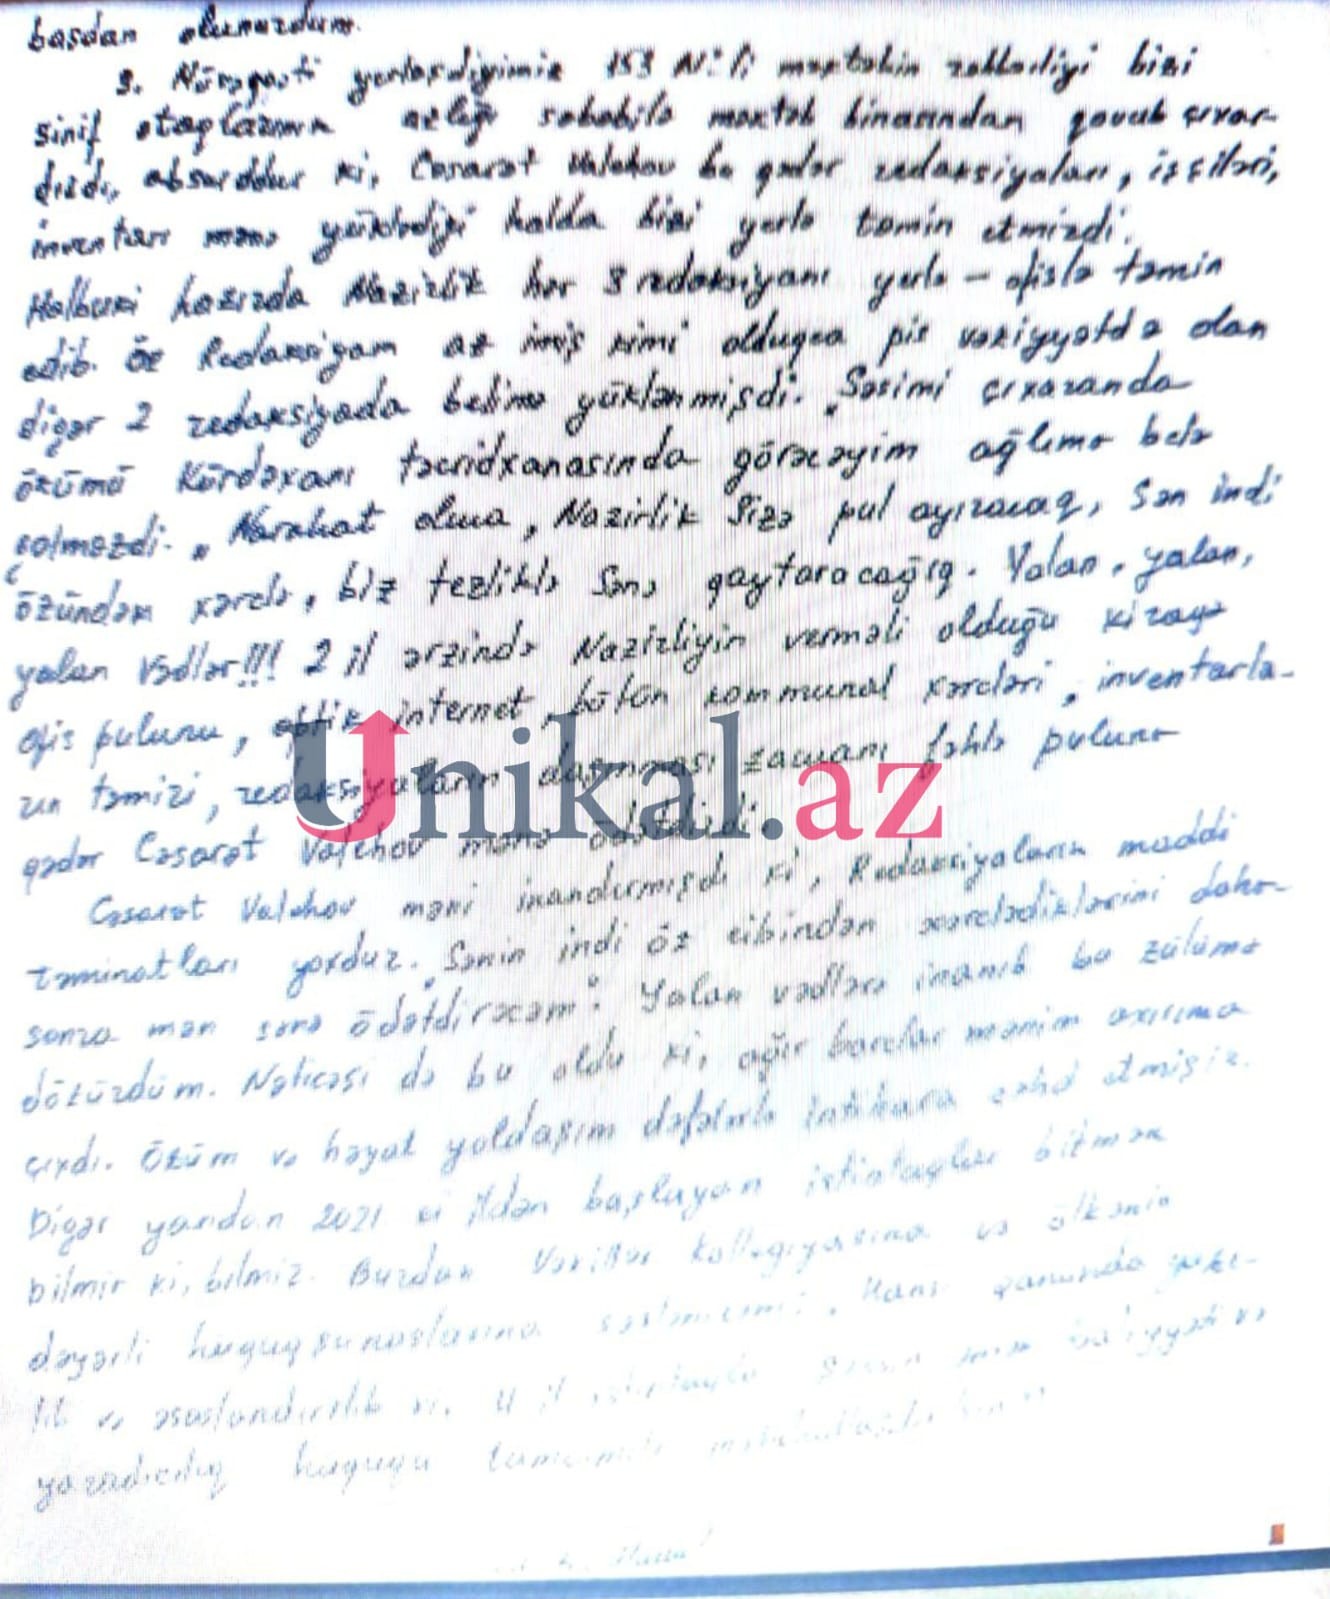 başdan olunurdum.
3. yerləşdiyimiz 153 N:li məktəbin rəhbərliyi bizi
sinif otaqlarının azlığı səbəbilə məktəb binasından qovub çıxar-
dırdı, absurddur ki, Cəsarət Valehov bu qədər redaksiyaları, işçiləri,
inventarı mənə yüklədiyi halda bizi yerlə təmin etmirdi.
Halbuki hazırda Nazirlik hər 3 redaksiyanı yerlə – ofislə təmin
edib. Öz Redaksiyam az imiş kimi olduqca pis vəziyyətdə olan
digər 2 redaksiyada belimə yüklənmişdi. Səsimi çıxaranda
özümü Kürdəxanı təcridxanasında görəcəyim ağlıma belə
gəlməzdi. „Narahat olma, Nazirlik Sizə pul ayıracaq, Sən indi
özündən xərclə, biz tezliklə Sənə qaytaracağıq. Yalan, yalan,
yalan Vədlər!!! 2 il ərzində Nazirliyin verməli olduğu kirayə
ofis pulunu, optik internet, bütün kommunal xərcləri, inventarla-
rın təmiri, redaksiyaların daşınması zamanı fəhlə puluna
qədər Cəsarət Valehov mənə
Cəsarət Valehov məni inandırmışdı ki, Redaksiyaların maddi
təminatları yoxdur. „Sənin indi öz cibindən xərclədiklərini daha-
sonra mən sənə ödətdirəcəm". Yalan vədlərə inanıb bu zülümə
dözürdüm. Nəticəsi də bu oldu ki, ağır borclar mənim axırıma
çıxdı. Özüm və həyat yoldaşım dəfələrlə intihara cəhd etmişik.
Digər yandan 2021 ci ildən başlayan istintaqlar bitmək
bilmir ki, bilmir. Burdan Vəkillər Kollegiyasına və ölkənin
dəyərli hüquqşünaslarına Hansı qanunda
və əsaslandırılıb ki, 4 il
yaradıcılıq hüququ